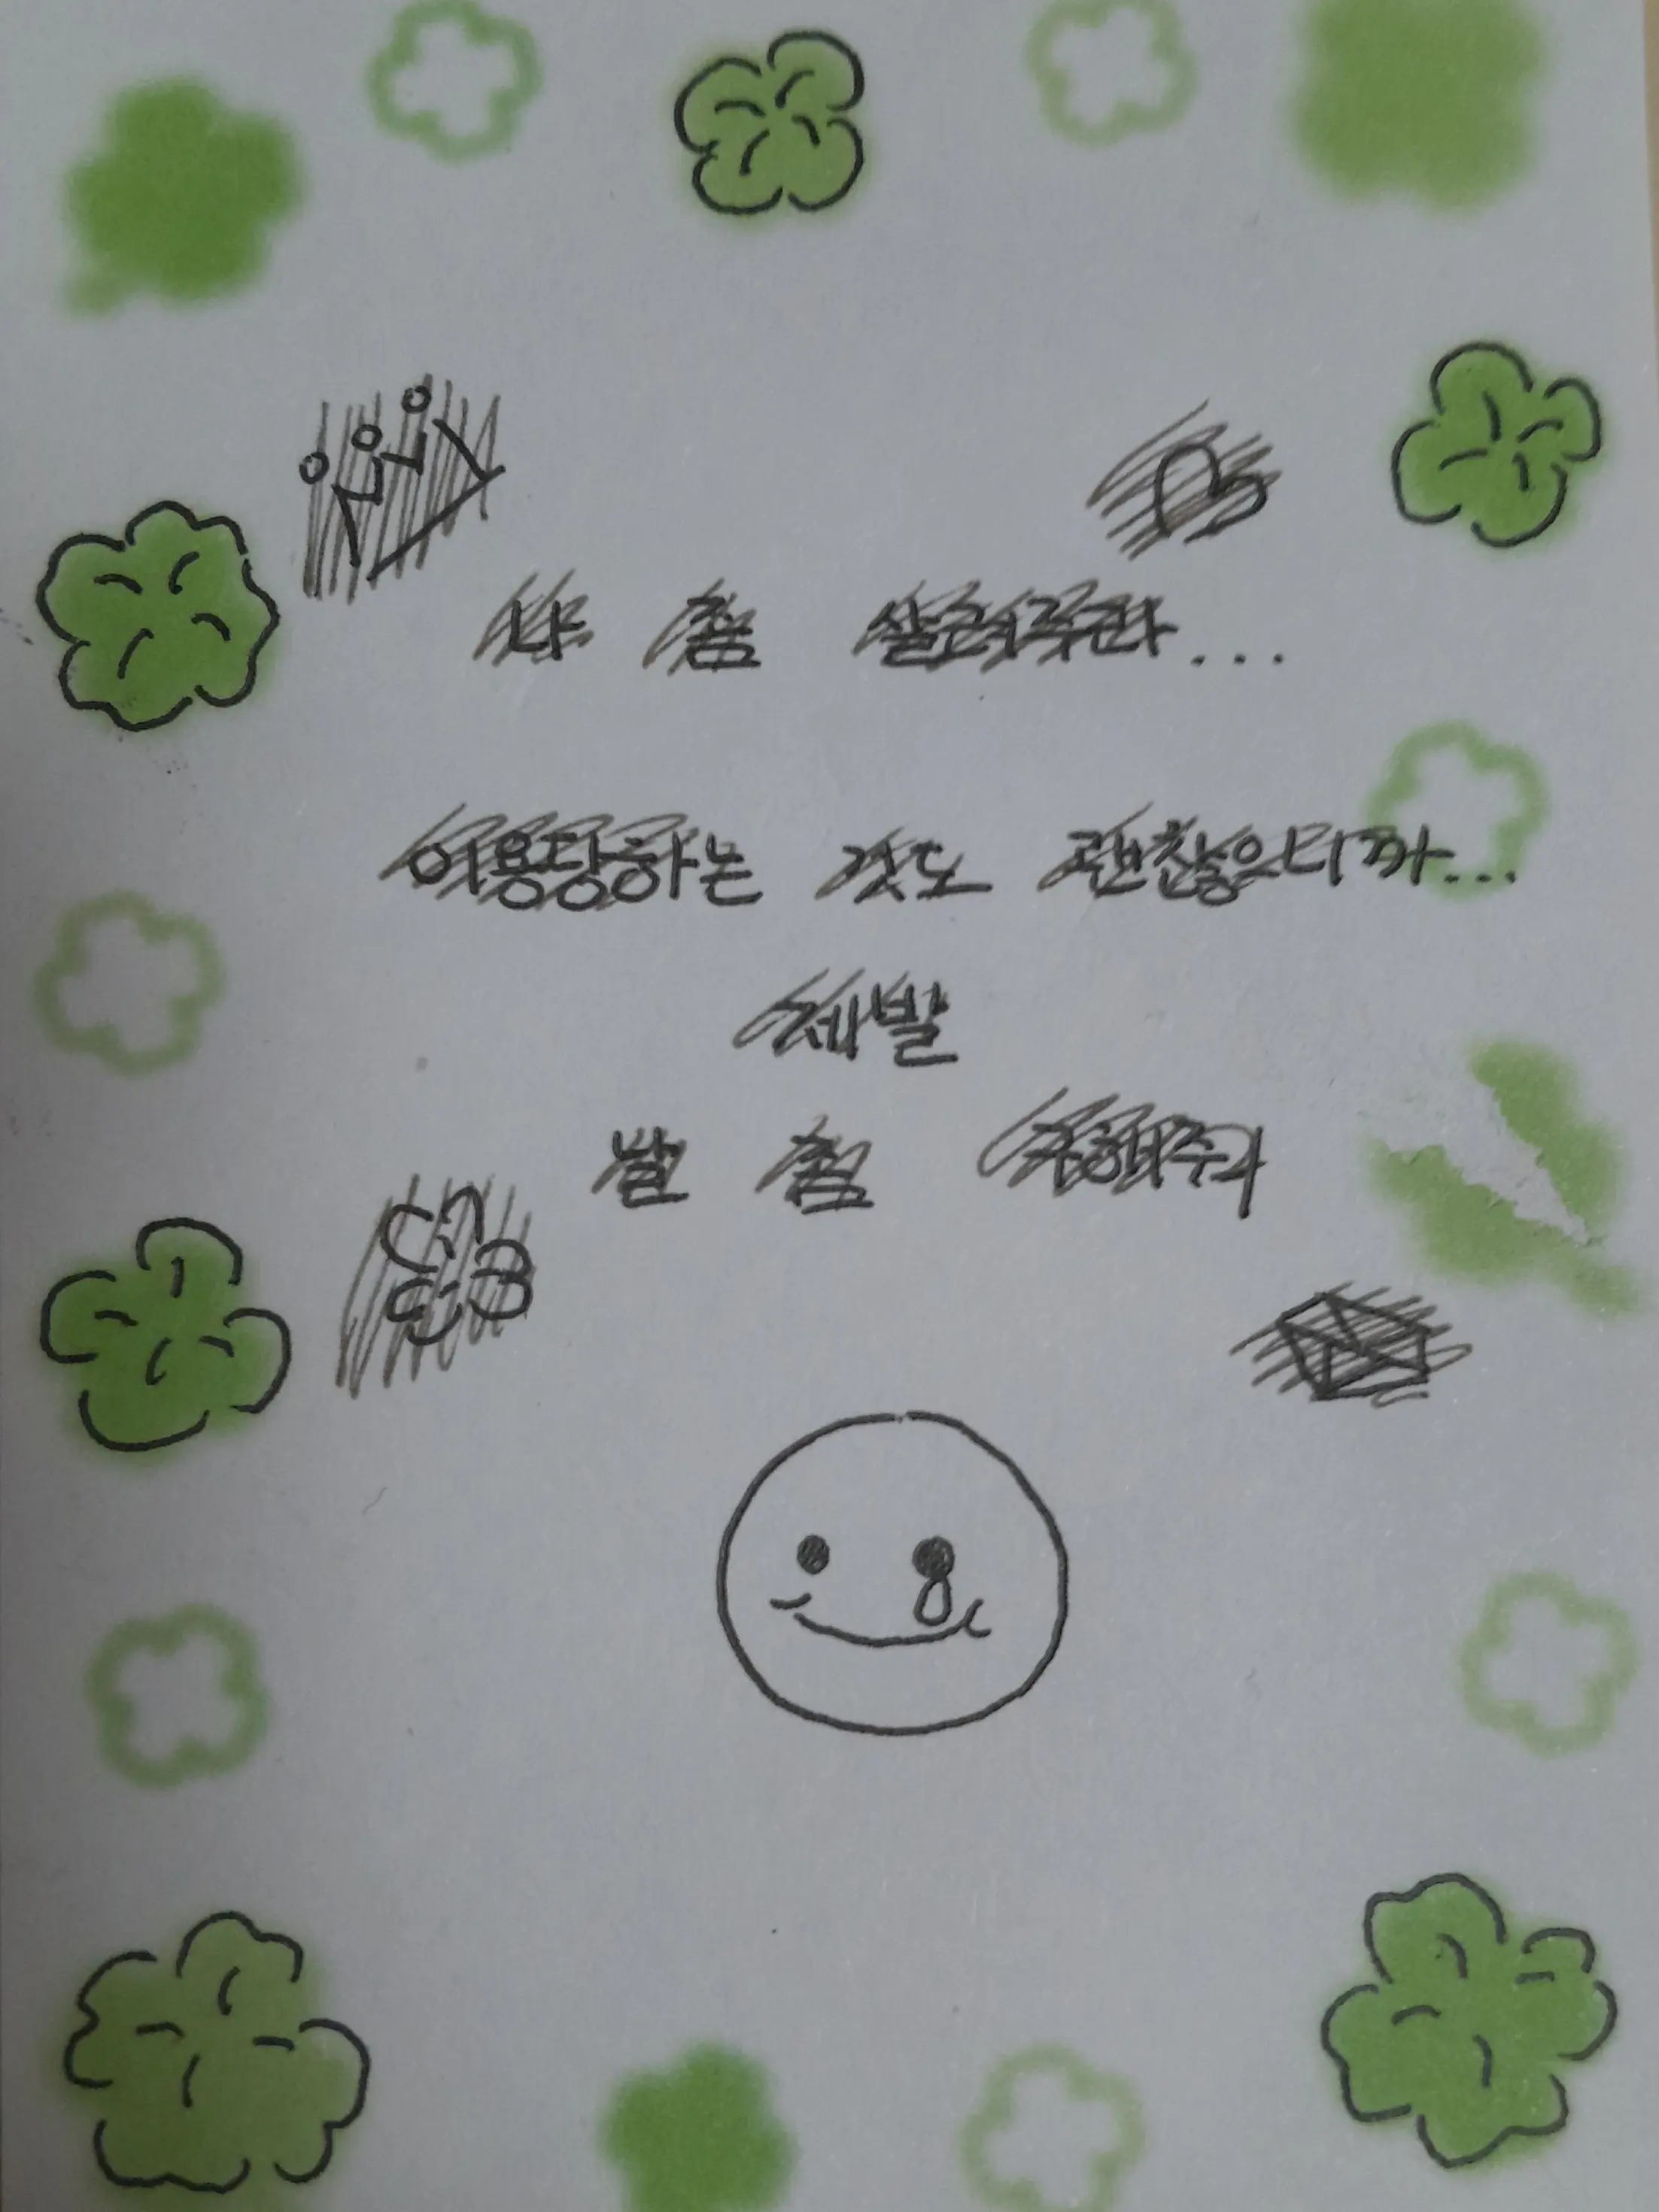 나 좀 살려주라...
이용당하는 것도 괜찮으니까...
제발
말 좀 해주라